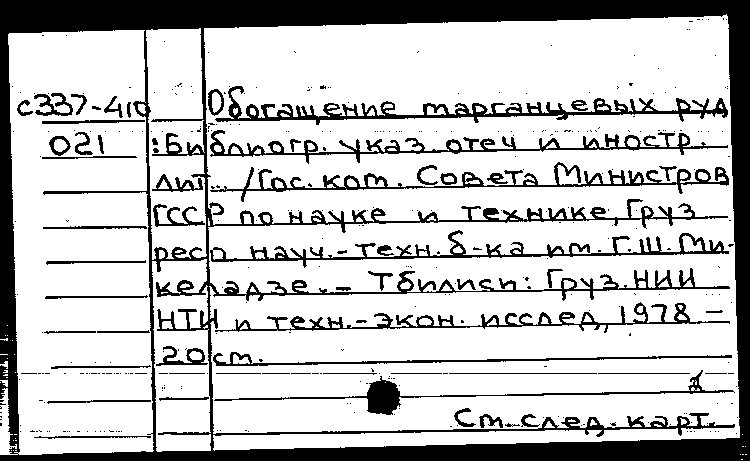 с337-410 Обогащение марганцевых руд
021 :Библиогр. указ. отеч и иностр.
лит... /Гос. ком. Совета Министров
ГССР по науке и технике, Груз
респ науч.-техн. б-ка им. Г.Ш. Ми-
келадзе. - Тбилиси: Груз. НИИ
НТИ и техн.-экон. исслед, 1978 -
20 см.
См. след. карт.